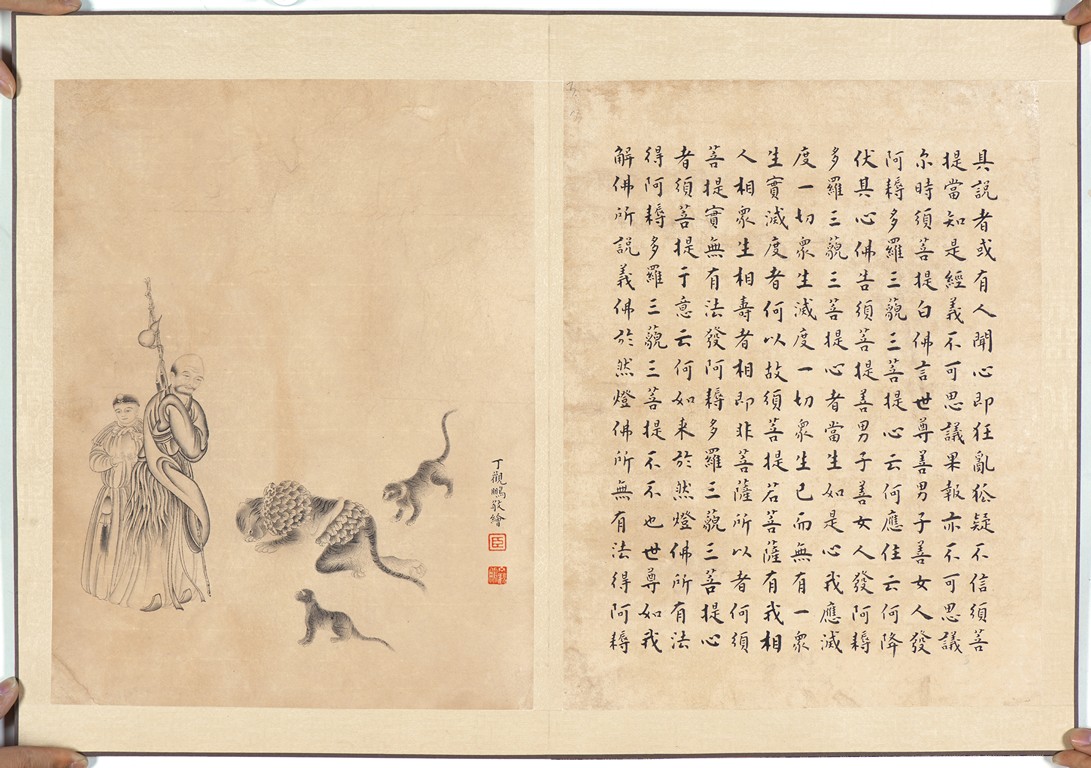 具說者或有人聞心即狂亂狐疑不信須菩
提當知是經義不可思議果報亦不可思議
尔時須菩提白佛言世尊善男子善女人發
阿耨多羅三藐三菩提心云何應住云何降
伏其心佛告須菩提善男子善女人發阿耨
多羅三藐三菩提心者當生如是心我應滅
度一切眾生滅度一切眾生已而無有一眾
生實滅度者何以故須菩提若菩薩有我相
人相眾生相壽者相即非菩薩所以者何須
菩提實無有法發阿耨多羅三藐三菩提心
者須菩提于意云何如来於然燈佛所有法
得阿耨多羅三藐三菩提不不也世尊如我
解佛所說義佛於然燈佛所無有法得阿耨
丁觀鵬敬繪
臣